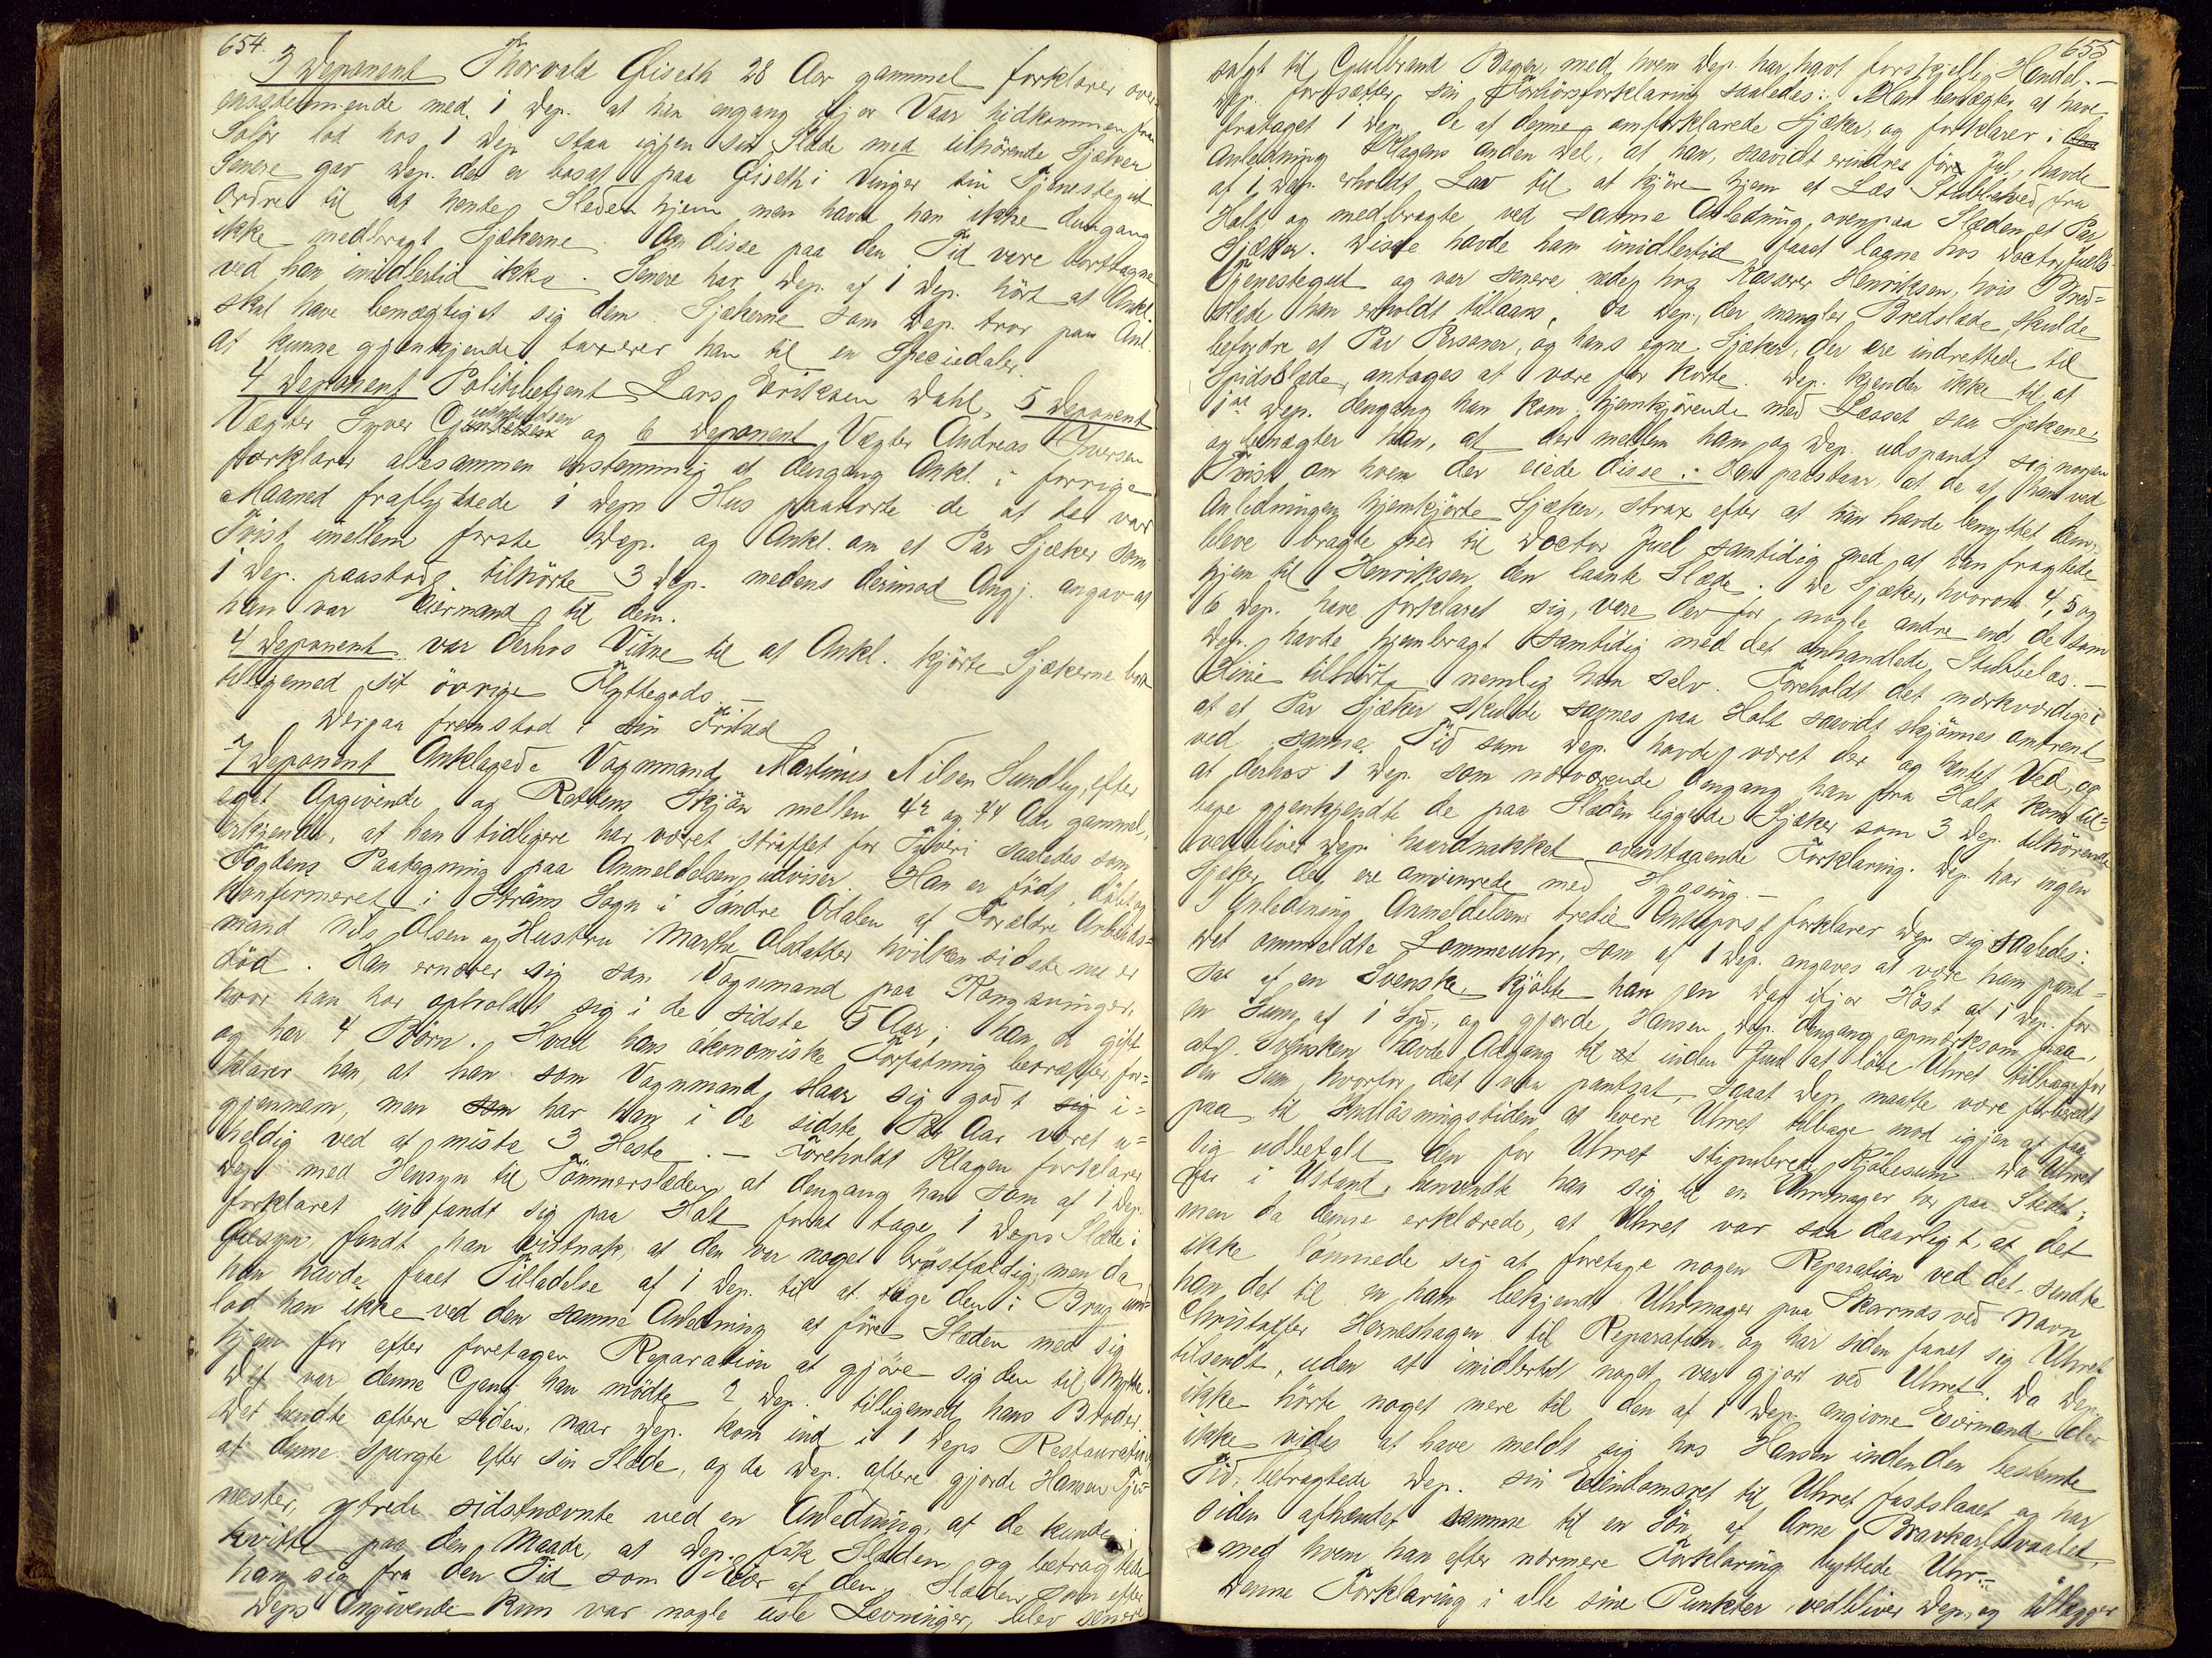 654.
3 Deponent Thorvald Giseth 28 Aar gammel forklarer over-
ensstemmende med 1 Dep. at han engang ifjor Vaar hidkommen fra
Solør lod hos 1 Dep staa igjen sin Slæde med tilhörende Sjæker
Senere gav Dep. der er bosat paa Giseth i Vinger sin Tjenestegut
Ordre til at hente Sleden hjem men havde han ikke dengang
ikke medbragt Sjækerne. Om disse paa den Tid vare borttagne
ved han imidlertid ikke. Senere har Dep. af 1 Dep. hört at Ankl.
skal have bemægtiget sig dem. Sjækerne som Dep. tror paa Anl.
at kunne gjenkjende, taxerer han til en Speciedaler.
4 Deponent Politibetjent Lars Eriksen Dahl, 5 Deponent
Vægter Syver Gundersen og 6 Deponent Vægter Andreas Iversen
forklarer allesammen enstemmig at dengang Ankl. i forrige
Maaned fraflyttede 1 Deps Hus paahørte de at der var
Tvist imellem første Dep. og Ankl. om et Par Sjæker som
1 Dep. paastod tilhörte 3 Dep. medens derimod Angj. angav at
han var Eiermand til dem.
4 Deponent var derhos Vidne til at Ankl. kjörte Sjækerne bort
tilligemed sit övrige Flyttegods. —
Derpaa fremstod i sin Frihed
7 Deponent Anklagede Vognmand Martinus Nilsen Sundby, efter
eget Opgivende og Rettens Skjön mellem 42 og 44 Aar gammel,
erkjender, at han tidligere har været straffet for Tyveri saaledes som
Fogdens Paategning paa Anmeldelsen udviser. Han er födt, döbt og
konfirmeret i Ströms Sogn i Söndre Odalen af Forældre Arbeids-
mand Nils Olsen og Hustru Marthe Olsdatter hvilken sidste nu er
död. Han ernærer sig som Vognmand paa Kongsvinger,
hvor han har opholdt sig i de sidste 5 Aar; han er gift
og har 4 Börn. Hvad hans ökonomiske Forfatning betræffer, for-
klarer han, at han som Vognmand slaar sig godt sig i-
gjennem, men som har han i de sidste Par Aar været u-
heldig ved at miste 3 Heste. — Foreholdt Klagen forklarer
Dep. med Hensyn til Tömmerslæden, at dengang han som af 1 Dep.
forklaret indfandt sig paa Holt forat tage 1 Deps Slæde i
Øiesyn fandt han vistnok, at den var noget bröstfældig, men da
han havde faaet Tilladelse af 1 Dep. til at tage den i Brug und-
lod han ikke ved den samme Anledning at före Slæden med sig
hjem for efter foretagen Reparation at gjöre sig den til Nytte.
Det var denne Gang han mödte 2 Dep. tilligemed hans Broder.
Det hendte oftere siden, naar Dep. kom ind i 1 Deps Restauration
at denne spurgte efter sin Slæde, og da Dep. oftere gjorde Hansen Tje-
nester, ytrede sidstnævnte ved en Anledning, at de kunde
kvitte paa den Maade, at Dep. fik Slæden og betragtede
han sig fra den Tid som Eier af den. Slæden som efter
Deps Angivende kun var nogle usle Levninger, blev senere
655
solgt til Gulbrand Bager, med hvem Dep. har havt forskjellig Handel. —
Dep. fortsætter sin Forhörsforklaring saaledes: Han benægter at have
frataget 1 Dep. de af denne omforklarede Sjæker, og forklarer i
Anledning Klagens anden Del, at han, saavidt erindres för Jul, havde
af 1 Dep. erholdt Lov til at kjöre hjem et Læs Stubbeved fra
Holt og medbragte ved samme Anledning, ovenpaa Slæden, et Par
Sjæker. Disse havde han imidlertid faaet laane hos Doctor Juels
Tjenestegut og var senere nede hos Kasserer Henriksen, hvis Bred-
slæde han erholdt tillaans, da Dep., der mangler Bredslæde skulde
befordre et Par Personer, og hans egne Sjæker, der ere indrettede til
Spidsslæde, antages at være for korte. Dep. kjender ikke til at
1ste Dep. dengang han kom hjemkjörende med Læsset saa Sjækerne,
og benægter han, at der mellem ham og Dep. udspandt sig nogen
Tvist om hvem der eiede disse. Han paastaar, at de af ham ved
Anledningen hjemkjörte Sjæker, strax efter at han havde benyttet dem,
bleve bragte ned til Doctor Juel samtidig med at han fragtede
hjem til Henriksen den laante Slæde. De Sjæker, hvorom 4, 5 og
6 Dep. have forklaret sig, vare derfor nogle andre end de som
Dep. havde hjembragt samtidig med det omhandlede Stubbelæs. —
Disse tilhörte nemlig ham selv. Foreholdt det mærkværdige i
at et Par Sjæker skulde savnes paa Holt saavidt skjönnes omtrent
ved samme Tid som Dep. havde været der og hentet Ved, og
at derhos 1 Dep. som nærværende dengang han fra Holt kom til-
bage gjenkjendte de paa Slæden liggende Sjæker som 3 Dep. tilhörende
vedbliver Dep. haardnakket ovenstaaende Forklaring. Dep. har ingen
Sjæker der ere omvinrede med Hyssing. —
I Anledning Anmeldelsens tredie Ankepost forklarer Dep. sig saaledes:
Det ommeldte Lommeuhr, som af 1 Dep. angaves at være ham pant-
sat af en Svenske, kjöbte han en Dag ifjor Höst af 1 Dep. for
en Sum af 1 Spd., og gjorde Hansen Dep. dengang opmærksom paa,
at Svensken havde Adgang til at inden Juul at löse Uhret tilbage for
den Sum hvorfor det var pantsat, saaat Dep. maatte være forberedt
paa til Indlösningstiden at levere Uhret tilbage mod igjen at faa
sig udbetalt den for Uhret stipulerede Kjöbesum. Da Uhret
var i Ustand, henvendte han sig til en Uhrmager her paa Stedet;
men da denne erklærede, at Uhret var saa daarligt, at det
ikke lönnede sig at foretage nogen Reparation ved det, sendte
han det til en ham bekjendt Uhrmager paa Skarnæs ved Navn
Christoffer Herneshagen til Reparation, og har siden faaet sig Uhret
tilsendt, uden at imidlertid noget var gjort ved Uhret. Da Dep.
ikke hörte noget mere til den af 1 Dep. angivne Eiermand, der
ikke vides at have meldt sig hos Hansen inden den bestemte
Tid, betragtede Dep. sin Eiendomsret til Uhret fastslaaet og har
siden afhændet samme til en Sön af Arne
med hvem han efter nærmere Forklaring byttede Uhr. —
Denne Forklaring i alle sine Punkter, vedbliver Dep., og tillægger